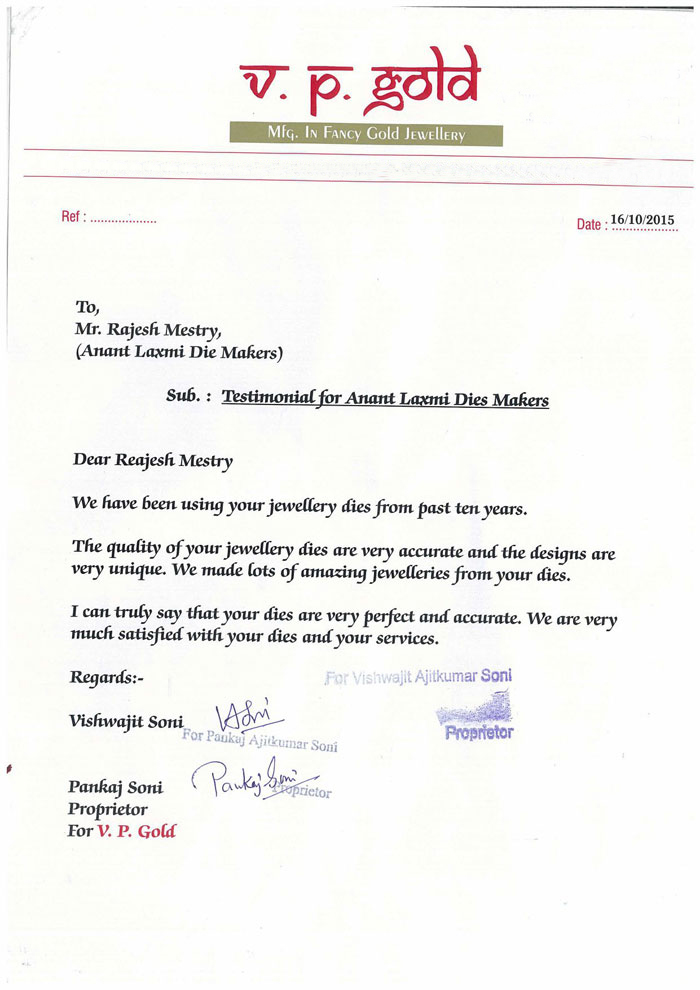 v. p. gold
Mfg. In Fancy Gold Jewellery
Ref : ...................
Date : 16/10/2015
To,
Mr. Rajesh Mestry,
(Anant Laxmi Die Makers)
Sub. : Testimonial for Anant Laxmi Dies Makers
Dear Reajesh Mestry
We have been using your jewellery dies from past ten years.
The quality of your jewellery dies are very accurate and the designs are
very unique. We made lots of amazing jewelleries from your dies.
I can truly say that your dies are very perfect and accurate. We are very
much satisfied with your dies and your services.
Regards:-
For Vishwajit Ajitkumar Soni
Vishwajit Soni
Proprietor
For Pankaj Ajitkumar Soni
Pankaj Soni
Pankaj Soni
Proprietor
Proprietor
For V. P. Gold